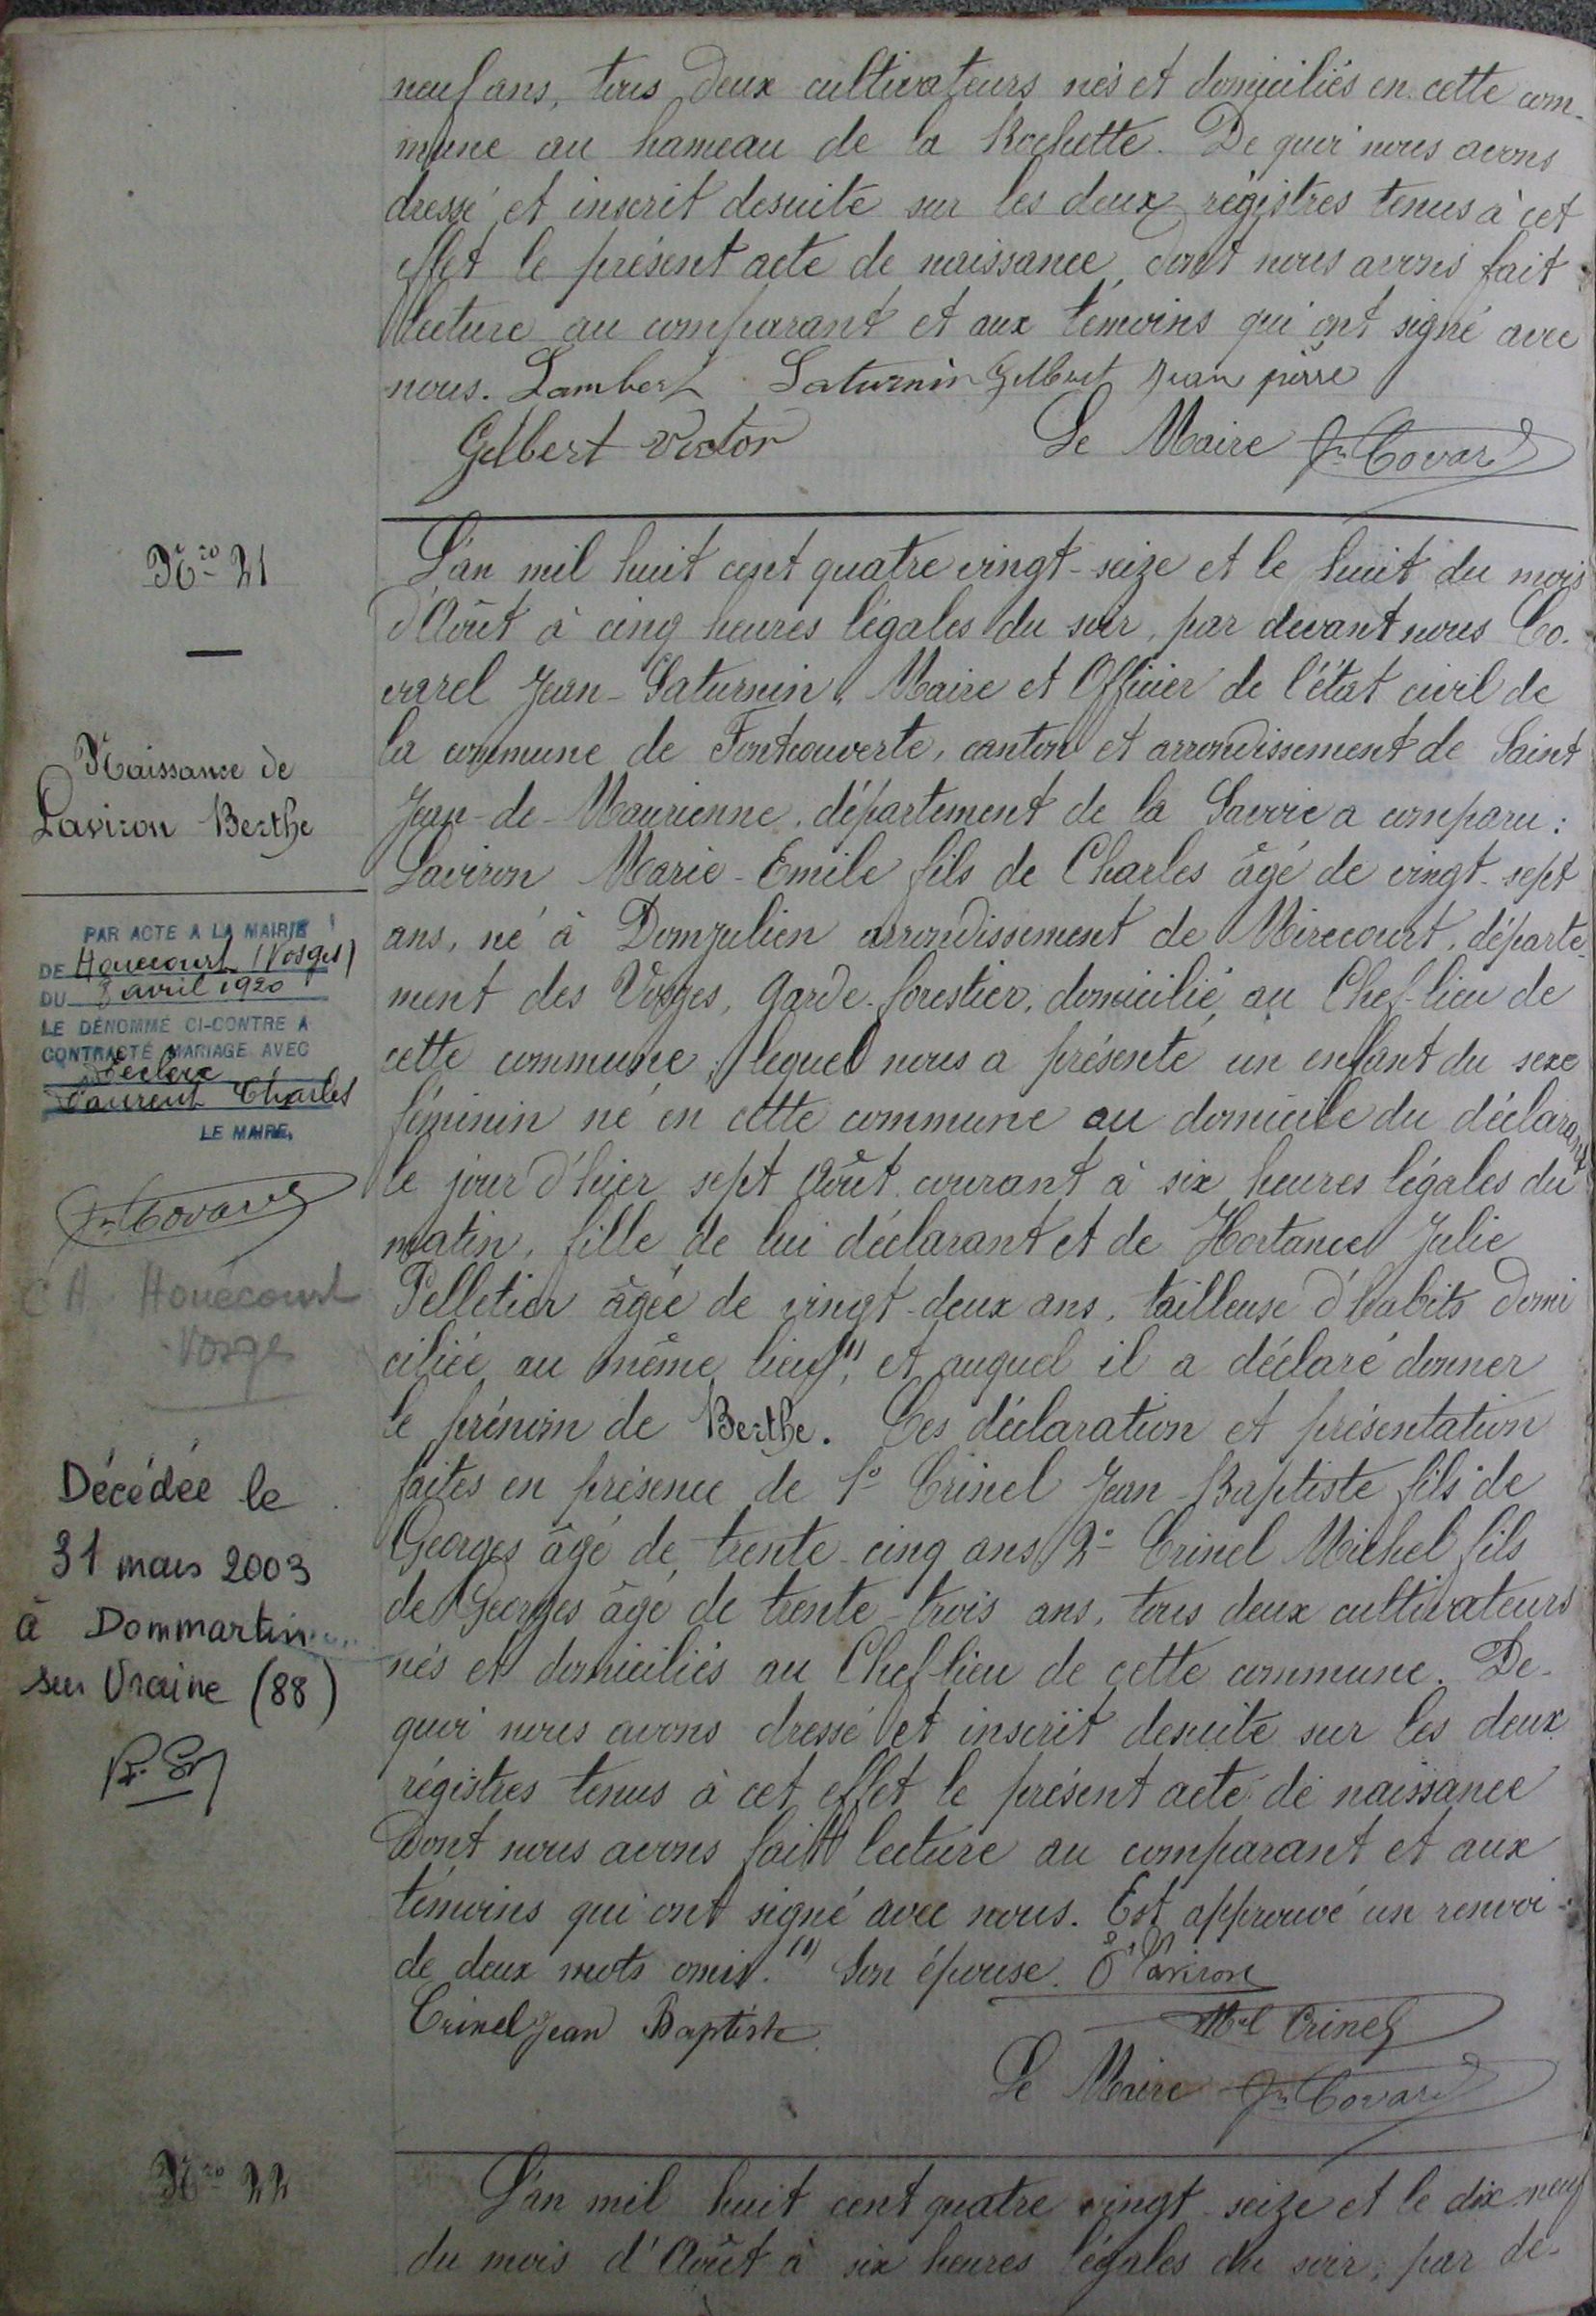 neuf ans, tous deux cultivateurs nés et domiciliés en cette com-
mune au hameau de la Rochette. De quoi nous avons
dressé et inscrit desuite sur les deux régistres tenus à cet
effet le présent acte de naissance, dont nous avons fait
lecture au comparant et aux témoins qui ont signé avec
nous. Lambert Saturnin Gilbert Jean pierre
Gilbert Victor Le Maire Jn Covarel
Nro 21
Naissance de
Laviron Berthe
PAR ACTE A LA MAIRIE
DE Houécourt (Vosges)
DU 8 avril 1920
LE DÉNOMMÉ CI-CONTRE A
CONTRACTÉ MARIAGE AVEC
Laurent Charles
LE MAIRE,
Jn Covarel
A Houécourt
Vosge
Décédée le
31 mars 2003
à Dommartin
sur Vraine (88)
L'an mil huit cent quatre vingt-seize et le huit du mois
d'Août à cinq heures légales du soir, par devant nous Co-
varel Jean-Saturnin, Maire et Officier de l'état civil de
la commune de Fontcouverte, canton et arrondissement de Saint
Jean-de-Maurienne, département de la Savoie a comparu:
Laviron Marie-Emile fils de Charles âgé de vingt-sept
ans, né à Domjulien arrondissement de Mirecourt, départe-
ment des Vosges, Garde-forestier, domicilié au Chef-lieu de
cette commune, lequel nous a présenté un enfant du sexe
féminin né en cette commune au domicile du déclarant
le jour d'hier sept Août courant à six heures légales du
matin, fille de lui déclarant et de Hortance Julie
Pelletier âgée de vingt-deux ans, tailleuse d'habits domi
ciliée au même lieu (1), et auquel il a déclaré donner
le prénom de Berthe. Ces déclaration et présentation
faites en présence de 1° Crinel Jean-Baptiste fils de
Georges âgé de trente-cinq ans 2° Crinel Michel fils
de Georges âgé de trente-trois ans, tous deux cultivateurs
nés et domiciliés au Chef-lieu de cette commune. De-
quoi nous avons dressé et inscrit desuite sur les deux
régistres tenus à cet effet le présent acte de naissance
dont nous avons fait lecture au comparant et aux
témoins qui ont signé avec nous. Est approuvé un renvoi
de deux mots omis. (1) Son épouse. E. Laviron
Crinel Jean Baptiste Mel Crinel
Le Maire Jn Covarel
Nro 22
L'an mil huit cent quatre vingt-seize et le dix neuf
du mois d'Août à six heures légales du soir, par de-